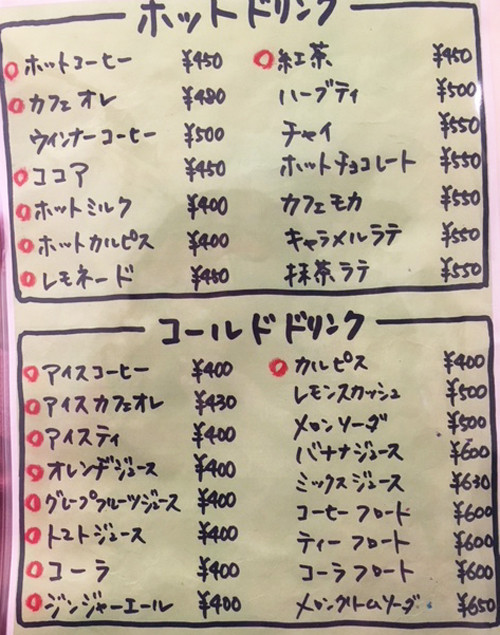 ホットドリンク
ホットコーヒー ¥450
カフェオレ ¥480
ウィンナーコーヒー ¥500
ココア ¥450
ホットミルク ¥400
ホットカルピス ¥400
レモネード ¥450
紅茶 ¥450
ハーブティ ¥500
チャイ ¥550
ホットチョコレート ¥550
カフェモカ ¥550
キャラメルラテ ¥550
抹茶ラテ ¥550
コールドドリンク
アイスコーヒー ¥400
アイスカフェオレ ¥430
アイスティ ¥400
オレンヂジュース ¥400
グレープフルーツジュース ¥400
トマトジュース ¥400
コーラ ¥400
ジンジャーエール ¥400
カルピス ¥400
レモンスカッシュ ¥500
メロンソーダ ¥500
バナナジュース ¥600
ミックスジュース ¥630
コーヒーフロート ¥600
ティーフロート ¥600
コーラフロート ¥600
メロンクリームソーダ ¥650